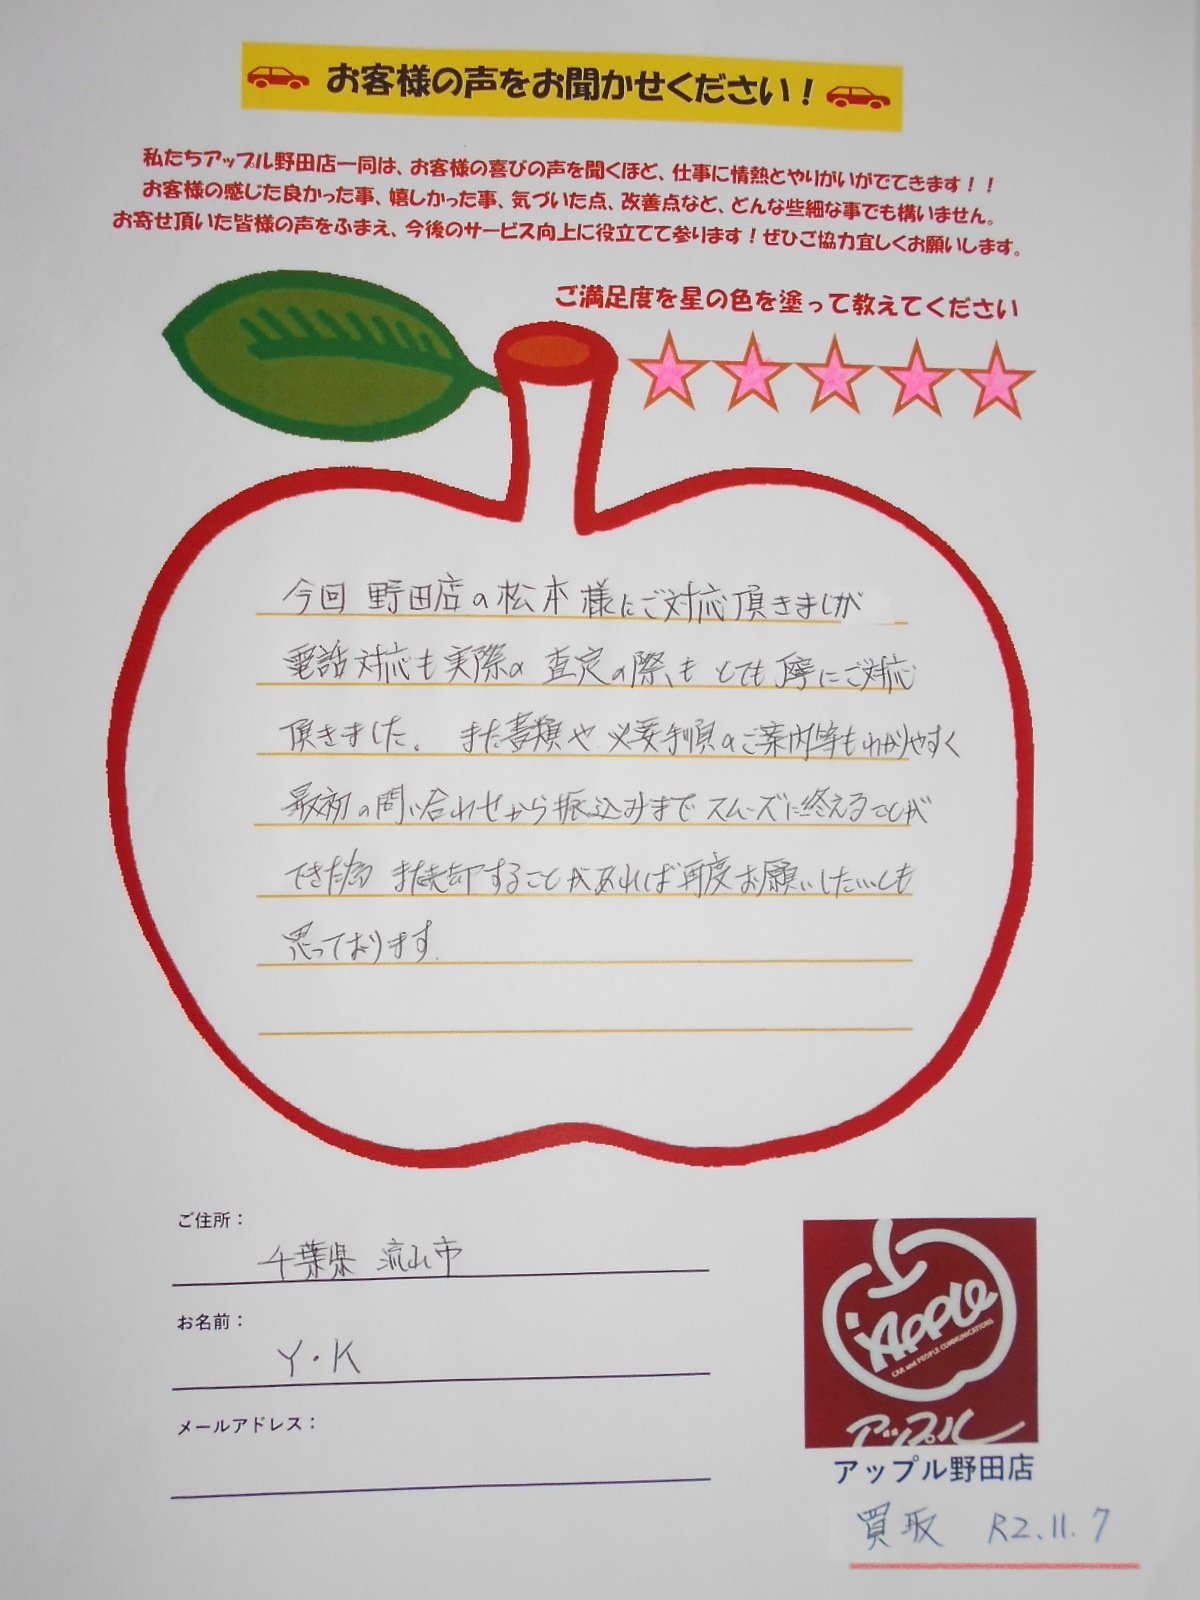 お客様の声をお聞かせください！
私たちアップル野田店一同は、お客様の喜びの声を聞くほど、仕事に情熱とやりがいがでてきます！！
お客様の感じた良かった事、嬉しかった事、気づいた点、改善点など、どんな些細な事でも構いません。
お寄せ頂いた皆様の声をふまえ、今後のサービス向上に役立てて参ります！ぜひご協力宜しくお願いします。
ご満足度を星の色を塗って教えてください
今回 野田店の松本様にご対応頂きましが
電話対応も実際の査定の際も とても丁寧にご対応
頂きました。 また書類や必要手順のご案内等もわかりやすく
最初の問い合わせから振込みまでスムーズに終えることが
できた為 また売却することがあれば再度お願いしたいとも
思っております。
ご住所：
千葉県 流山市
お名前：
Y・K
メールアドレス：
Apple
CAR and PEOPLE COMMUNICATIONS
アップル
アップル野田店
買取 R2.11.7